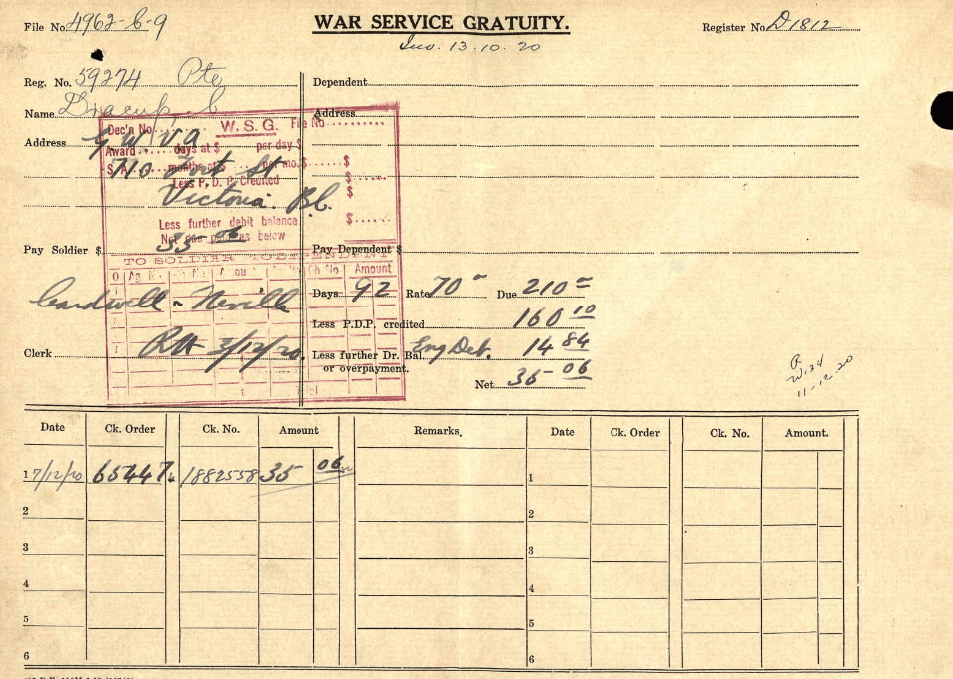 File No. 4962-C-9
WAR SERVICE GRATUITY.
Register No. D1812
13.10.20
Reg. No. 59274 Pte
Dependent
Name
Address
Address G W V A
710 Fort St.
Victoria. B.C.
Dec'n No. W.S.G. File No
Award days at $ per day $
months at $ per mo. $ $
Less P. D. P. Credited $
$
Less further debit balance $
Net due paid as below
Pay Soldier $ 35 06
Pay Dependent $
TO SOLDIER TO DEPENDENT
Ch No Amount
Cardwell - Neville
Days 92 Rate 70 Due 210
Less P.D.P. credited 160 10
Clerk 3/12/20.
Less further Dr. Bal. Eng Deb. 14 84
or overpayment.
Net 35 06
11-12-20
Date Ck. Order Ck. No. Amount Remarks. Date Ck. Order Ck. No. Amount.
1 7/12/20 65447 1882558 35 06 1
2 2
3 3
4 4
5 5
6 6